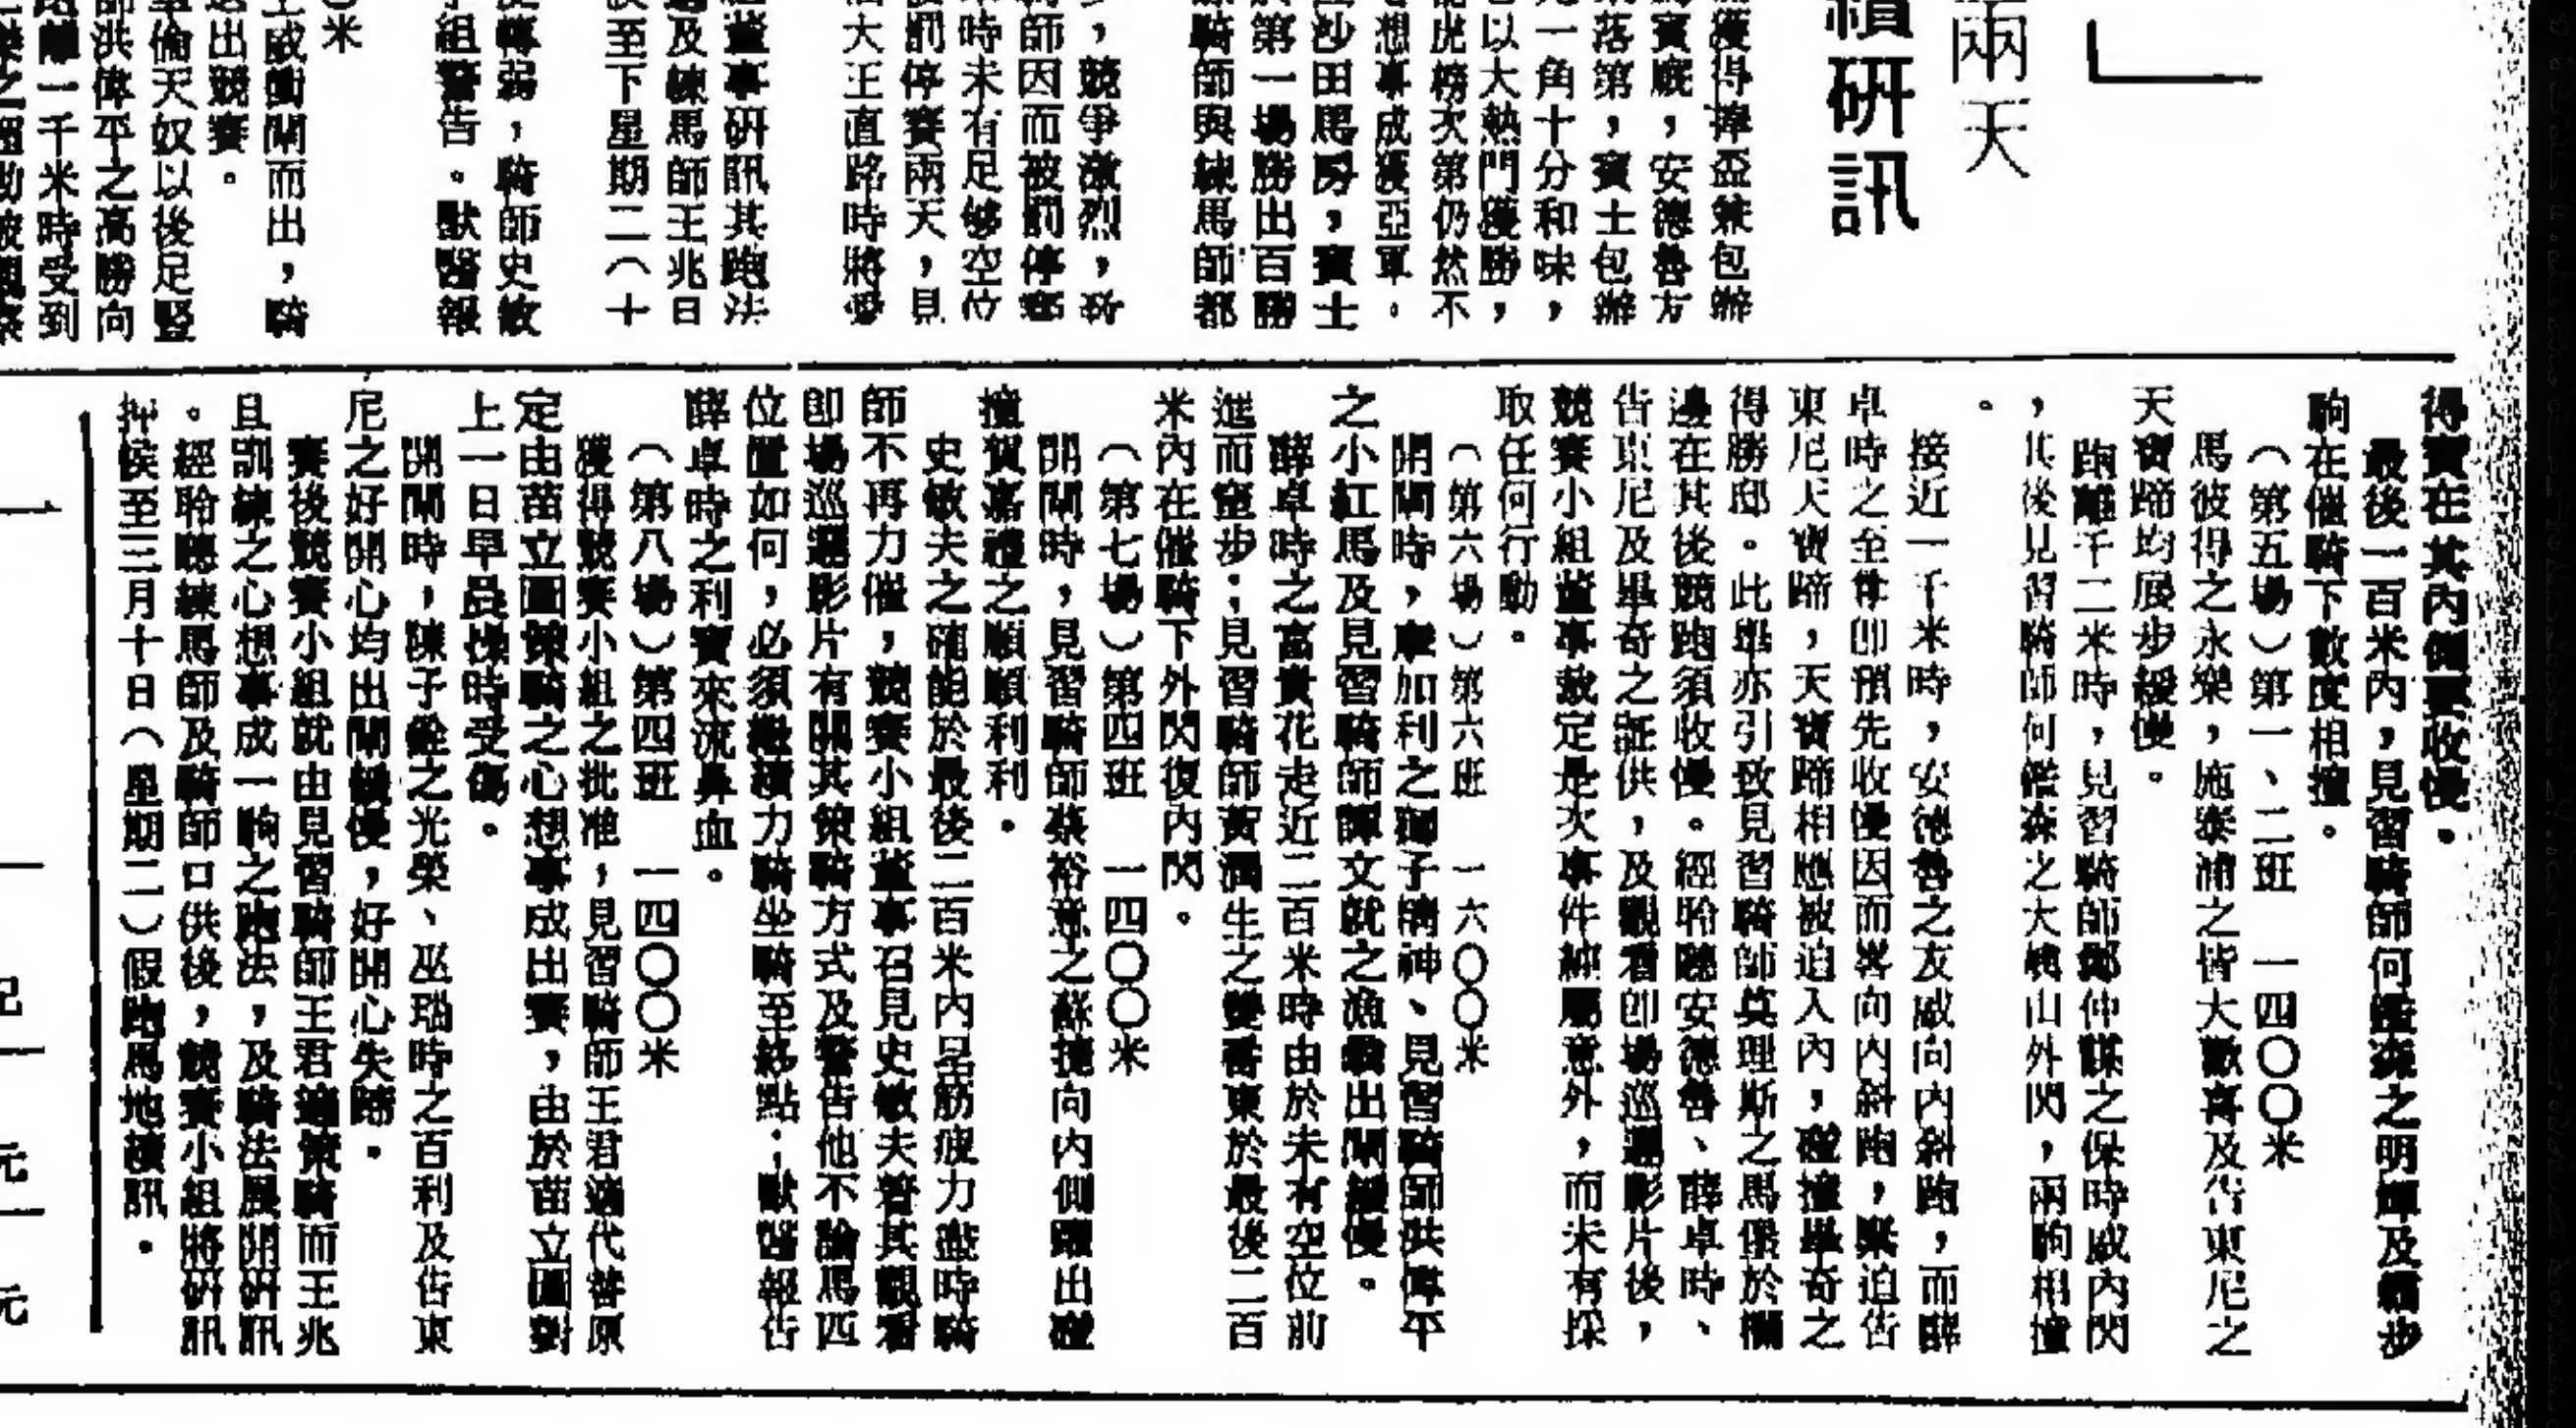 兩天
續研訊
獲得捧盃兼包辦
寶廐，安德魯方
落第，寶士包辦
一角十分和味，
以大熱門獲勝，
虎榜次第仍然不
想事成獲亞軍。
沙田馬房，寶士
第一場勝出百勝
騎師與練馬師都
，競爭激烈，
師因而被罰停賽
時未有足够空位
罰停賽兩天，見
大王直路時將愛
董事研訊其跑法
及練馬師王兆日
至下星期二（十
轉弱，騎師史敏
組警告。獸醫報
米
威衝閘而出，騎
出競賽。
倫天奴以後足豎
師洪偉平之高勝向
距離一千米時受到
得寶在其內側要收慢。
最後一百米內，見習騎師何鑑森之明輝及
駒在催騎下數度相撞。
（第五場）第一、二班　一四〇〇米
馬彼得之永樂，施泰浦之皆大歡喜及告東尼之
天寶蹄均展步緩慢。
跑離千二米時，見習騎師鄭仲謀之保時威內閃
，其後見習騎師何鑑森之大嶼山外閃，兩駒相撞
。
接近一千米時，安德魯之友誠向內斜跑，而薛
卓時之至尊卽預先收慢因而畧向內斜跑，緊迫告
東尼天寶蹄，天寶蹄相應被迫入內，碰撞畢奇之
得勝邸。此舉亦引致見習騎師莫理斯之馬傑於欄
邊在其後競跑須收慢。經聆聽安德魯、薛卓時、
告東尼及畢奇之証供，及觀看卽場巡邏影片後，
競賽小組董事裁定是次事件純屬意外，而未有採
取任何行動。
（第六場）第六班　一六〇〇米
開閘時，摩加利之獅子精神、見習騎師洪偉平
之小紅馬及見習騎師譚文就之漁歌出閘緩慢。
薛卓時之富貴花走近二百米時由於未有空位前
進而窒步；見習騎師黃潤生之雙喜東於最後二百
米內在催騎下外閃復內閃。
（第七場）第四班　一四〇〇米
開閘時，見習騎師蔡裕意之蘇捷向內側躍出碰
撞賀嘉禮之順順利利。
史敏夫之確能於最後二百米內呈筋疲力盡時騎
師不再力催，競賽小組董事召見史敏夫着其觀看
卽場巡邏影片有關其策騎方式及警告他不論馬匹
位置如何，必須繼續力騎坐騎至終點；獸醫報告
薛卓時之利寶來流鼻血。
（第八場）第四班　一四〇〇米
獲得競賽小組之批准，見習騎師王君適代替原
定由苗立圖策騎之心想事成出賽，由於苗立圖對
上一日早晨操時受傷。
開閘時，陳子銓之光榮、巫瑙時之百利及告東
尼之好開心均出閘緩慢，好開心失蹄。
賽後競賽小組就由見習騎師王君適策騎而王兆
旦訓練之心想事成一駒之跑法，及騎法展開研訊
。經聆聽練馬師及騎師口供後，競賽小組將研訊
押候至三月十日（星期二）假跑馬地續訊。
一
元
元